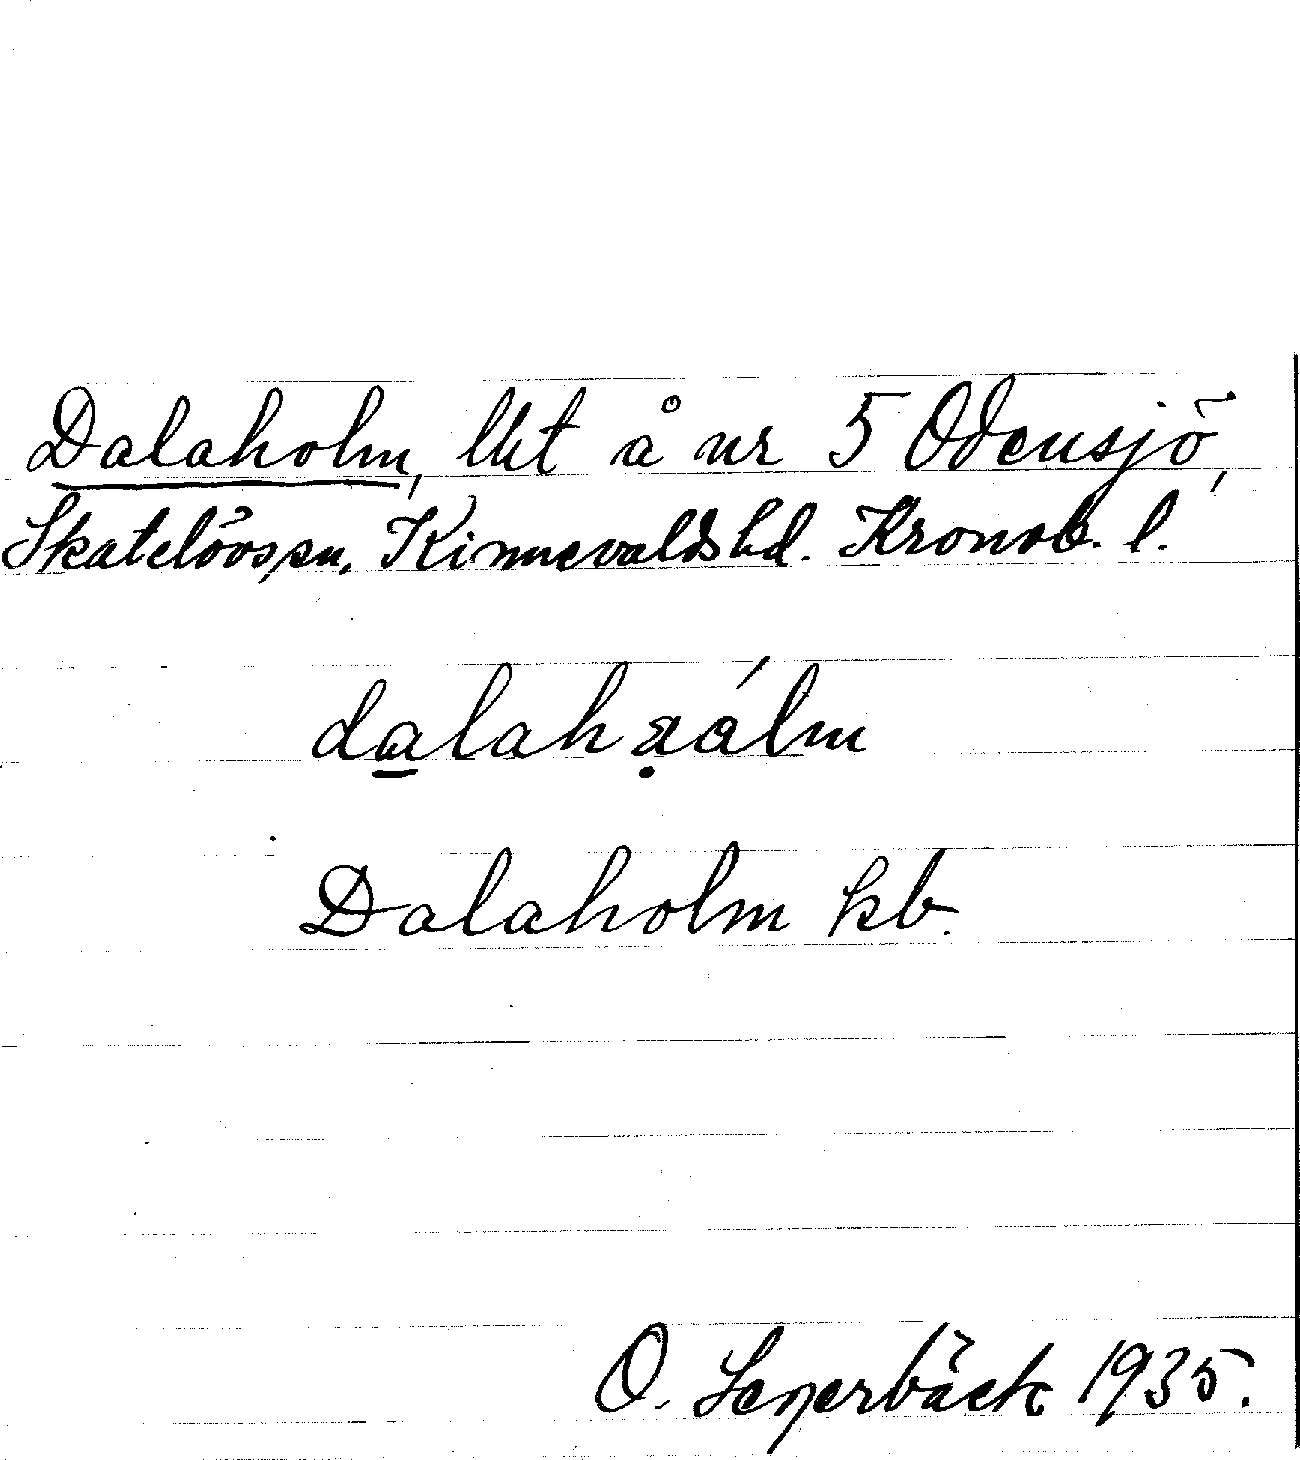 Dalaholm, lht å nr 5 Odensjö,
Skatelövs sn, Kinnevalds hd. Kronob. l.
Dalaholm kb.
O. 1935.